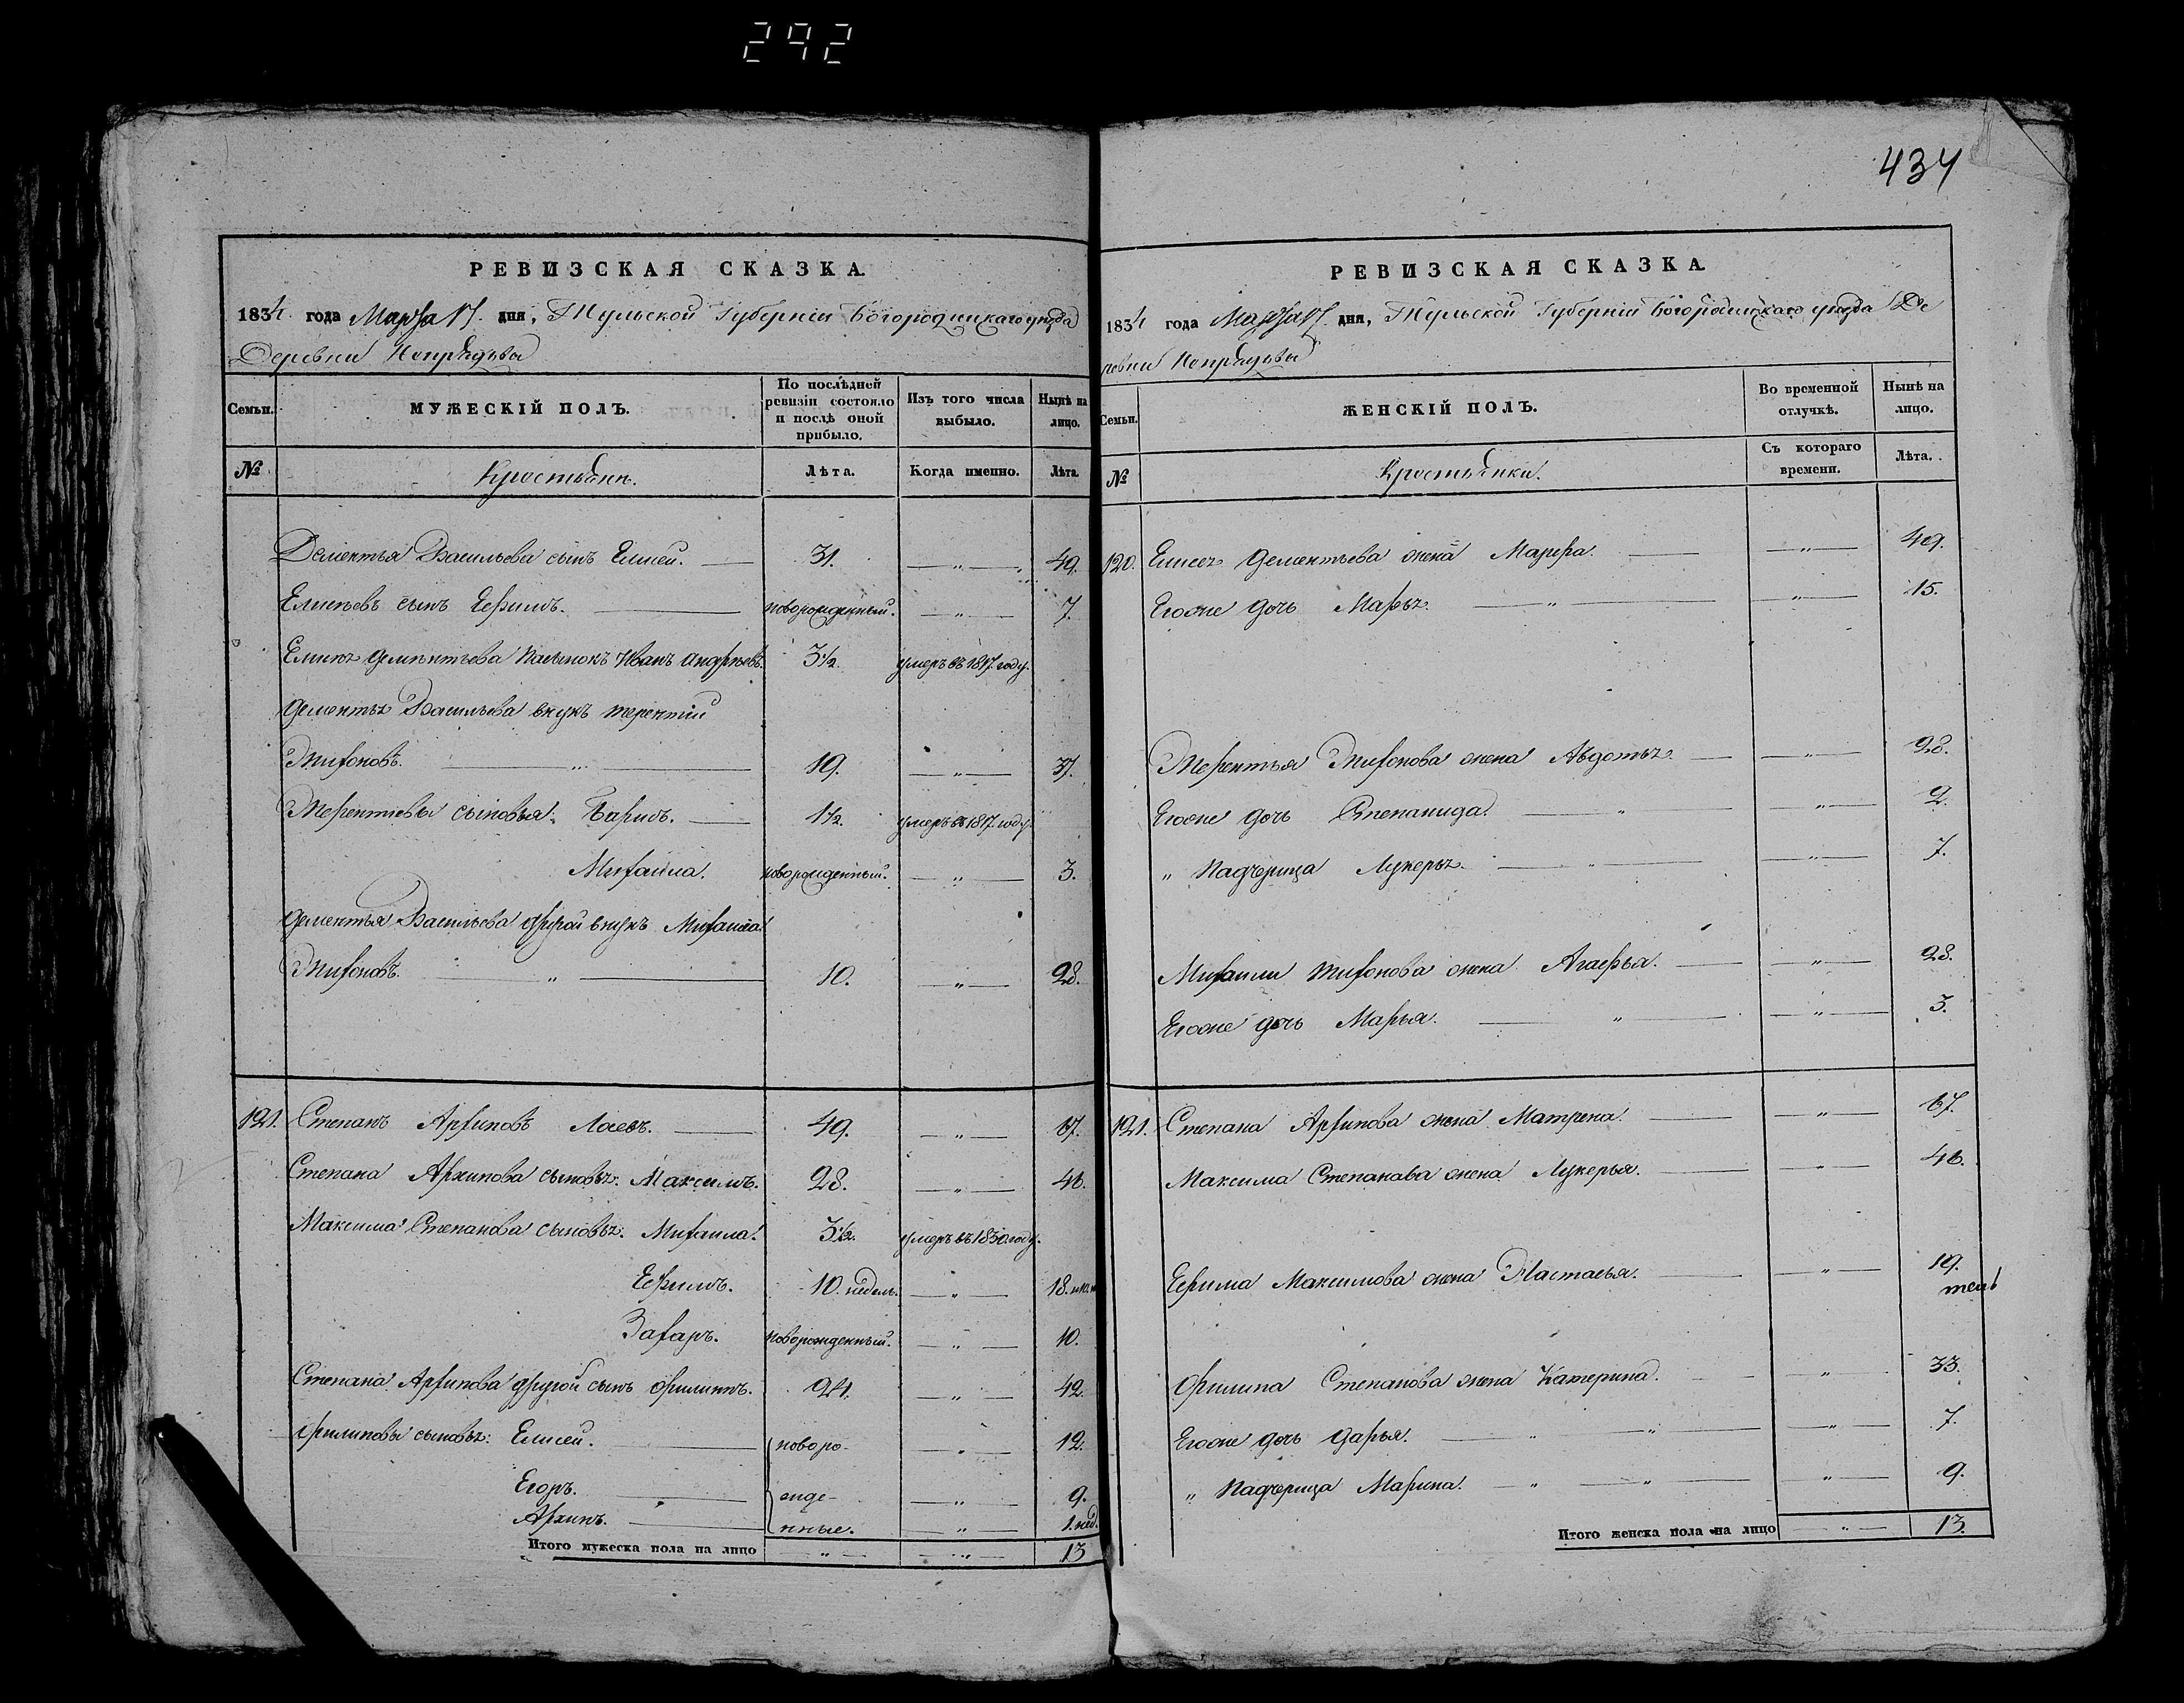 292
434
РЕВИЗСКАЯ СКАЗКА.
1834 года Марта 17. дня, Тульской Губерніи Богородицкаго уѣзда
Деревни Непрядвы
Семьи.
МУЖЕСКІЙ ПОЛЪ.
По послѣдней ревизіи состояло и послѣ оной прибыло.
Изъ того числа выбыло.
Нынѣ на лицо.
№
Крестьяне.
Лѣта.
Когда именно.
Лѣта.
Дементья Васильева сынъ Елисей. 31. — „ — 49.
Елисѣевъ сынъ Ефимъ. новорожденный. — „ — 7.
Елисея Дементьева Пасынокъ Иванъ Андрѣевъ. 3 1/2. умеръ въ 1817. году.
Дементья Васильева внукъ Терентій
Тихоновъ. — „ — 19. — „ — 37.
Терентіевы сыновья: Барисъ. 1 1/2. умеръ въ 1817. году.
Михаила. новорожденный. — „ — 3.
Дементья Васильева другой внукъ Михаила
Тихоновъ. — „ — 10. — „ — 28.
121. Степанъ Архиповъ Лаевъ. 49. — „ — 67.
Степана Архипова сыновья: Максимъ. 28. — „ — 46.
Максима Степанова сыновья: Михаила. 3 1/2. умеръ въ 1830. году.
Ефимъ. 10. недель. — „ — 18.
Захаръ. новорожденный. — „ — 10.
Степана Архипова другой сынъ Филиппъ. 24. — „ — 42.
Филиповы сыновья: Елисей. новоро- — „ — 12.
Егоръ. жде- — „ — 9.
Архипъ. нные. — „ — 1. нед.
Итого мужеска пола на лицо — „ — — „ — 13
РЕВИЗСКАЯ СКАЗКА.
1834 года Марта 17. дня, Тульской Губерніи Богородицкаго уѣзда Де
ревни Непрядвы
Семьи.
ЖЕНСКІЙ ПОЛЪ.
Во временной отлучкѣ.
Нынѣ на лицо.
№
Крестьянки.
Съ котораго времени.
Лѣта.
120. Елисея Дементьева жена Марфа. — „ — 49.
Егоже дочь Марья. — „ — — „ — 15.
Терентья Тихонова жена Авдотья. — „ — 28.
Егоже дочь Степанида. „ — — „ — 2.
„ Падчерица Лукерья. — „ — — „ — 7.
Михаили Тихонова жена Агафья. — „ — 28.
Егоже дочь Марья. — „ — — „ — 3.
121. Степана Архипова жена Матрена. — „ — 67.
Максима Степанава жена Лукерья. — „ — 46.
Ефима Максимова жена Настасья. — „ — 19.
Филипа Степанова жена Катерина. — „ — 33.
Егоже дочь Дарья. — „ — „ — — „ — 7.
„ Падчерица Марина. — „ — „ — — „ — 9.
Итого женска пола на лицо — „ — 13.